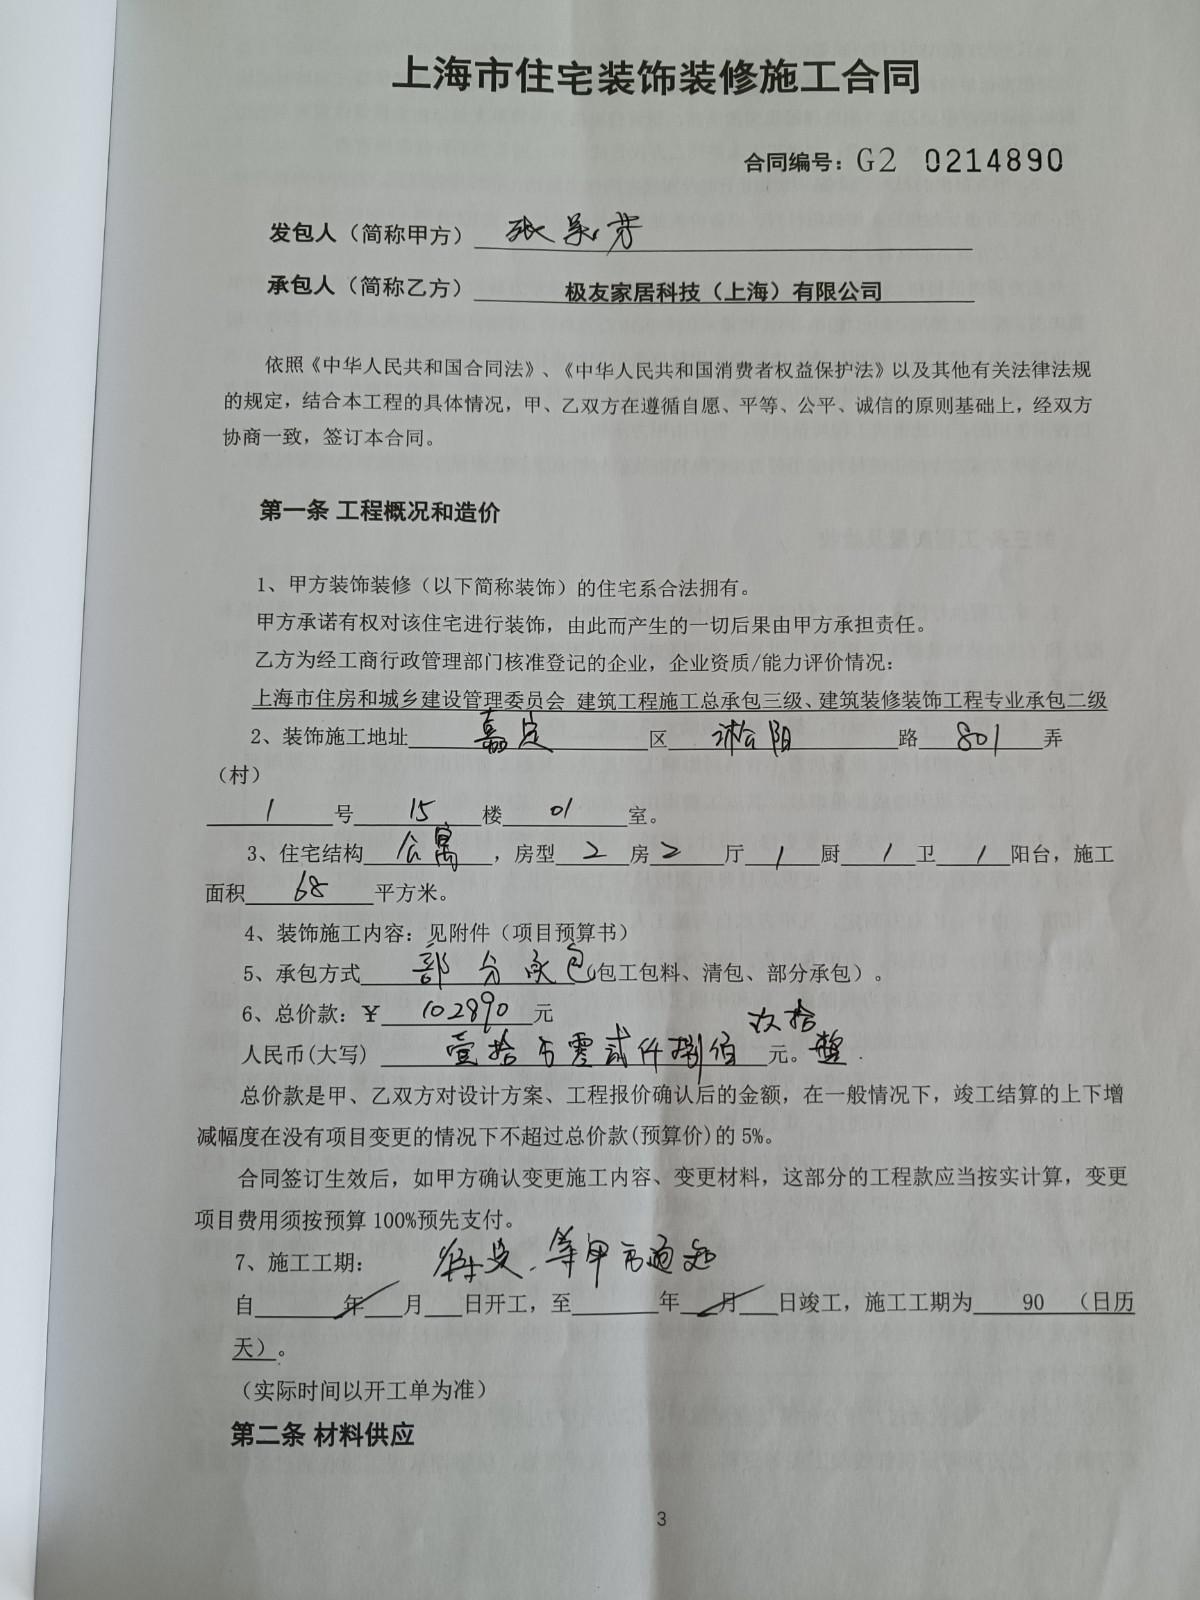 上海市住宅装饰装修施工合同
合同编号：G2 0214890
发包人（简称甲方） 张 芳
承包人（简称乙方） 极友家居科技（上海）有限公司
依照《中华人民共和国合同法》、《中华人民共和国消费者权益保护法》以及其他有关法律法规
的规定，结合本工程的具体情况，甲、乙双方在遵循自愿、平等、公平、诚信的原则基础上，经双方
协商一致，签订本合同。
第一条 工程概况和造价
1、甲方装饰装修（以下简称装饰）的住宅系合法拥有。
甲方承诺有权对该住宅进行装饰，由此而产生的一切后果由甲方承担责任。
乙方为经工商行政管理部门核准登记的企业，企业资质/能力评价情况：
上海市住房和城乡建设管理委员会 建筑工程施工总承包三级、建筑装修装饰工程专业承包二级
2、装饰施工地址 嘉定 区 淞阳 路 801 弄
（村）
1 号 15 楼 01 室。
3、住宅结构 公寓 ，房型 2 房 2 厅 1 厨 1 卫 1 阳台，施工
面积 68 平方米。
4、装饰施工内容：见附件（项目预算书）
5、承包方式 部分承包（包工包料、清包、部分承包）。
6、总价款：￥ 102890 元
玖拾
人民币(大写) 壹拾万零贰仟捌佰 元。整
总价款是甲、乙双方对设计方案、工程报价确认后的金额，在一般情况下，竣工结算的上下增
减幅度在没有项目变更的情况下不超过总价款(预算价)的 5%。
合同签订生效后，如甲方确认变更施工内容、变更材料，这部分的工程款应当按实计算，变更
项目费用须按预算 100%预先支付。
7、施工工期： 等甲方通知
自 年 月 日开工，至 年 月 日竣工，施工工期为 90 （日历
天）。
（实际时间以开工单为准）
第二条 材料供应
3